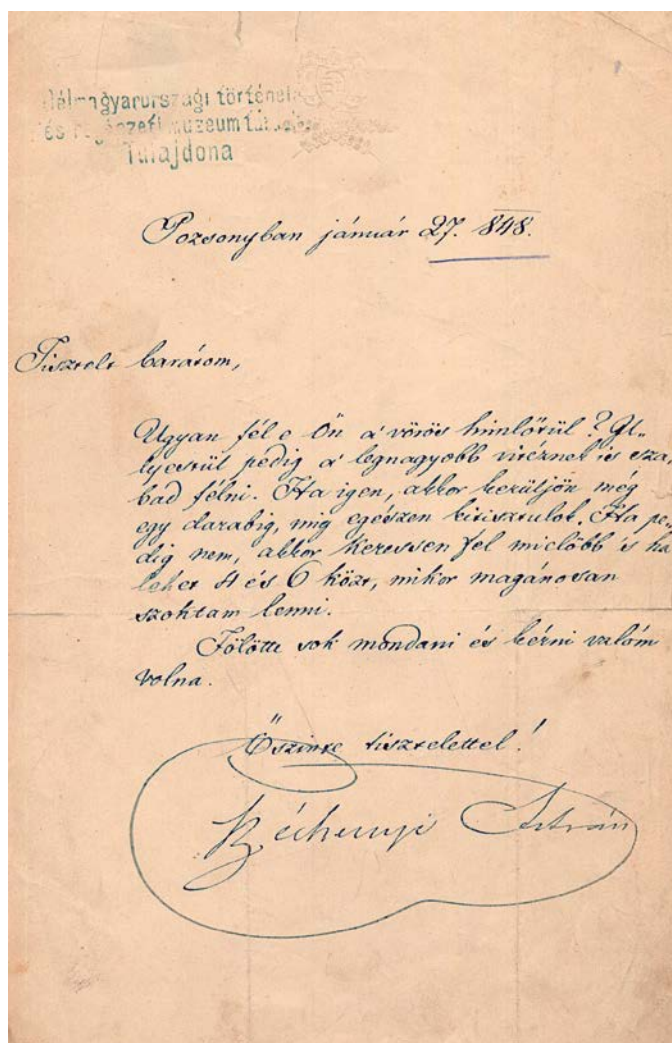 Délmagyarországi történelmi
és régészeti múzeum társulat
Tulajdona
Pozsonyban január 27. 848.
Tisztelt barátom,
Ugyan fél e Ön a' vörös himlőtül?
lyestül pedig a' legnagyobb vitéznek is sza,
bad félni. Ha igen, akkor kerüljön még
egy darabig, mig egészen kitisztulok. Ha pe,
dig nem, akkor keressen fel mielőbb 's ha
lehet 4 és 6 közt, mikor magánosan
szoktam lenni.
Fölötte sok mondani és kérni valóm
volna.
Őszinte tisztelettel!
Széchenyi István